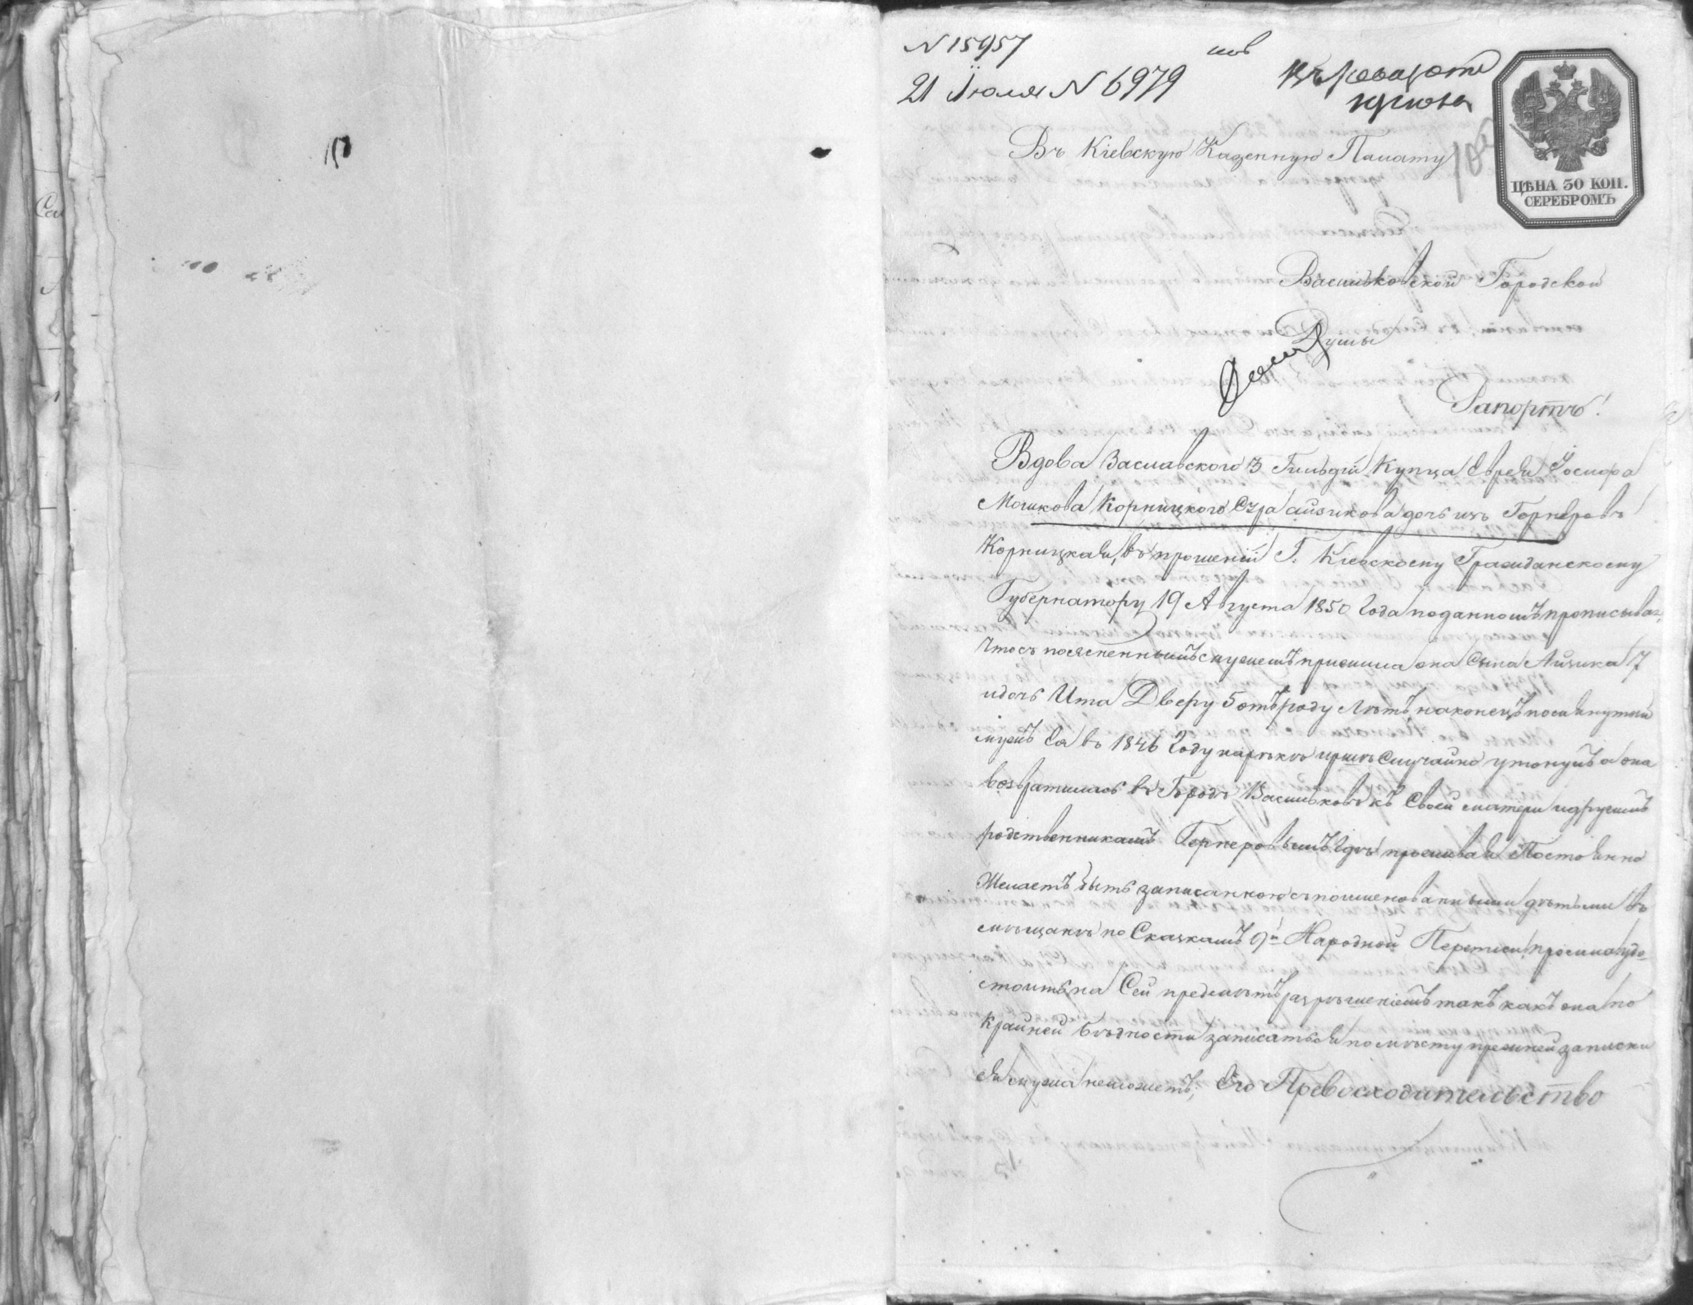 N 15957
21 Июля N 6979
Въ Кіевскую Казенную Палату
ЦѢНА 30 КОП.
СЕРЕБРОМЪ
Васильковской Городской
Думы
Рапортъ!
Вдова Заславского 3 Гильдіи Купца Еврея Іосифа
Мошкова Корницкого Сура Айзикова дочь изъ Горнеровъ
Корницкая, въ прошеніи Г. Кіевскому Гражданскому
Губернатору 19 Августа 1850 года поданномъ прописыва
что съ мужемъ прижила она Сына Айзика 7
и дочь Ита Дверу 5 отъ роду лѣтъ наконецъ
мужъ Ея въ 1846 Году случайно утонулъ а она
возвратилась въ Городъ Васильковъ къ Своей матери и другимъ
родственникамъ Горнеровымъ гдѣ проживая Постоянно
Желаетъ быть записанною съ поименованными дѣтьми въ
мѣщане по Сказкамъ 9й Народной Переписи, просила удо-
стоить на Сей предметъ разрѣшеніемъ такъ какъ она по
Крайней бѣдности записаться по мѣсту прежней записки
Ея мужа неможетъ, Его Превосходительство